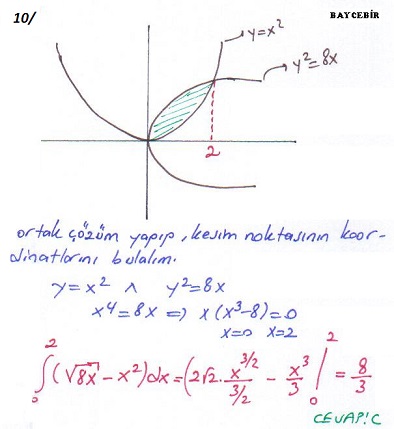 10/
BAYCEBİR
y=x²
y²=8x
2
ortak çözüm yapıp, kesim noktasının koor-
dinatlarını bulalım.
y=x² ∧ y²=8x
x⁴=8x ⇒ x(x³-8)=0
x=0 x=2
∫₀² (√8x - x²)dx = (2√2 · x^(3/2) / (3/2) - x³/3 |₀² = 8/3
CEVAP: C